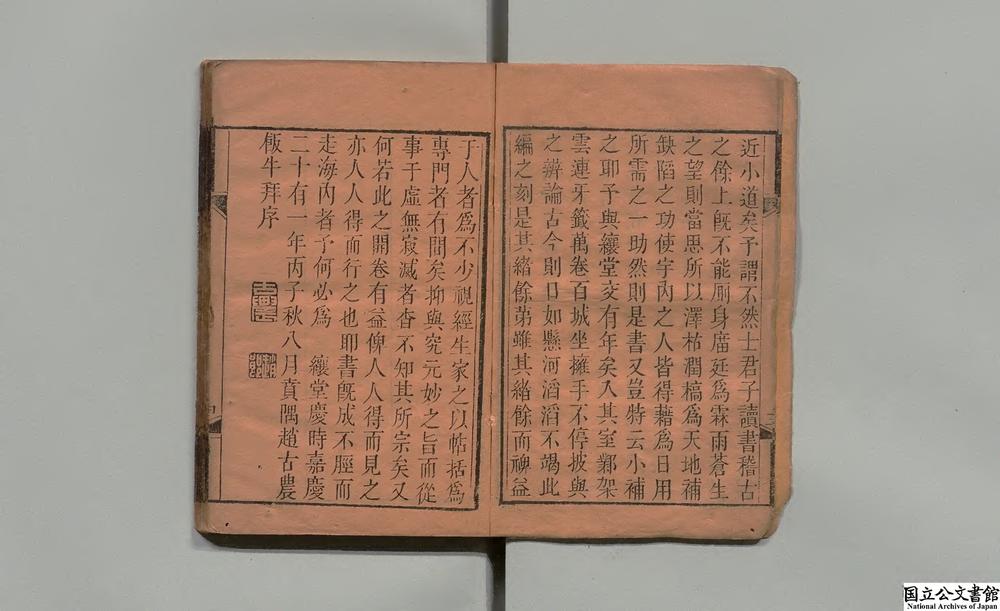 近小道矣予謂不然士君子讀書稽古
之餘上旣不能厠身廊廷爲霖雨蒼生
之望則當思所以澤枯潤槁爲天地補
缺䧟之功使宇內之人皆得藉爲日用
所需之一助然則是書又豈特云小補
之耶予與纕堂交有年矣入其室鄴架
雲連牙籤萬卷百城坐擁手不停披與
之辨論古今則口如懸河滔滔不竭此
編之刻是其緒餘苐雖其緒餘而裨益
于人者爲不少視經生家之以帖括爲
專門者有間矣抑與究元妙之旨而從
事于虛無寂滅者杳不知其所宗矣又
何若此之開卷有益俾人人得而見之
亦人人得而行之也耶書旣成不脛而
走海內者予何必爲　纕堂慶時嘉慶
二十有一年丙子秋八月賁隅趙古農
飯牛拜序
国立公文書館
National Archives of Japan